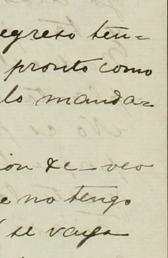 egreso ten-
pronto como
lo manda-
ion &c - veo
e no tengo
se vaya